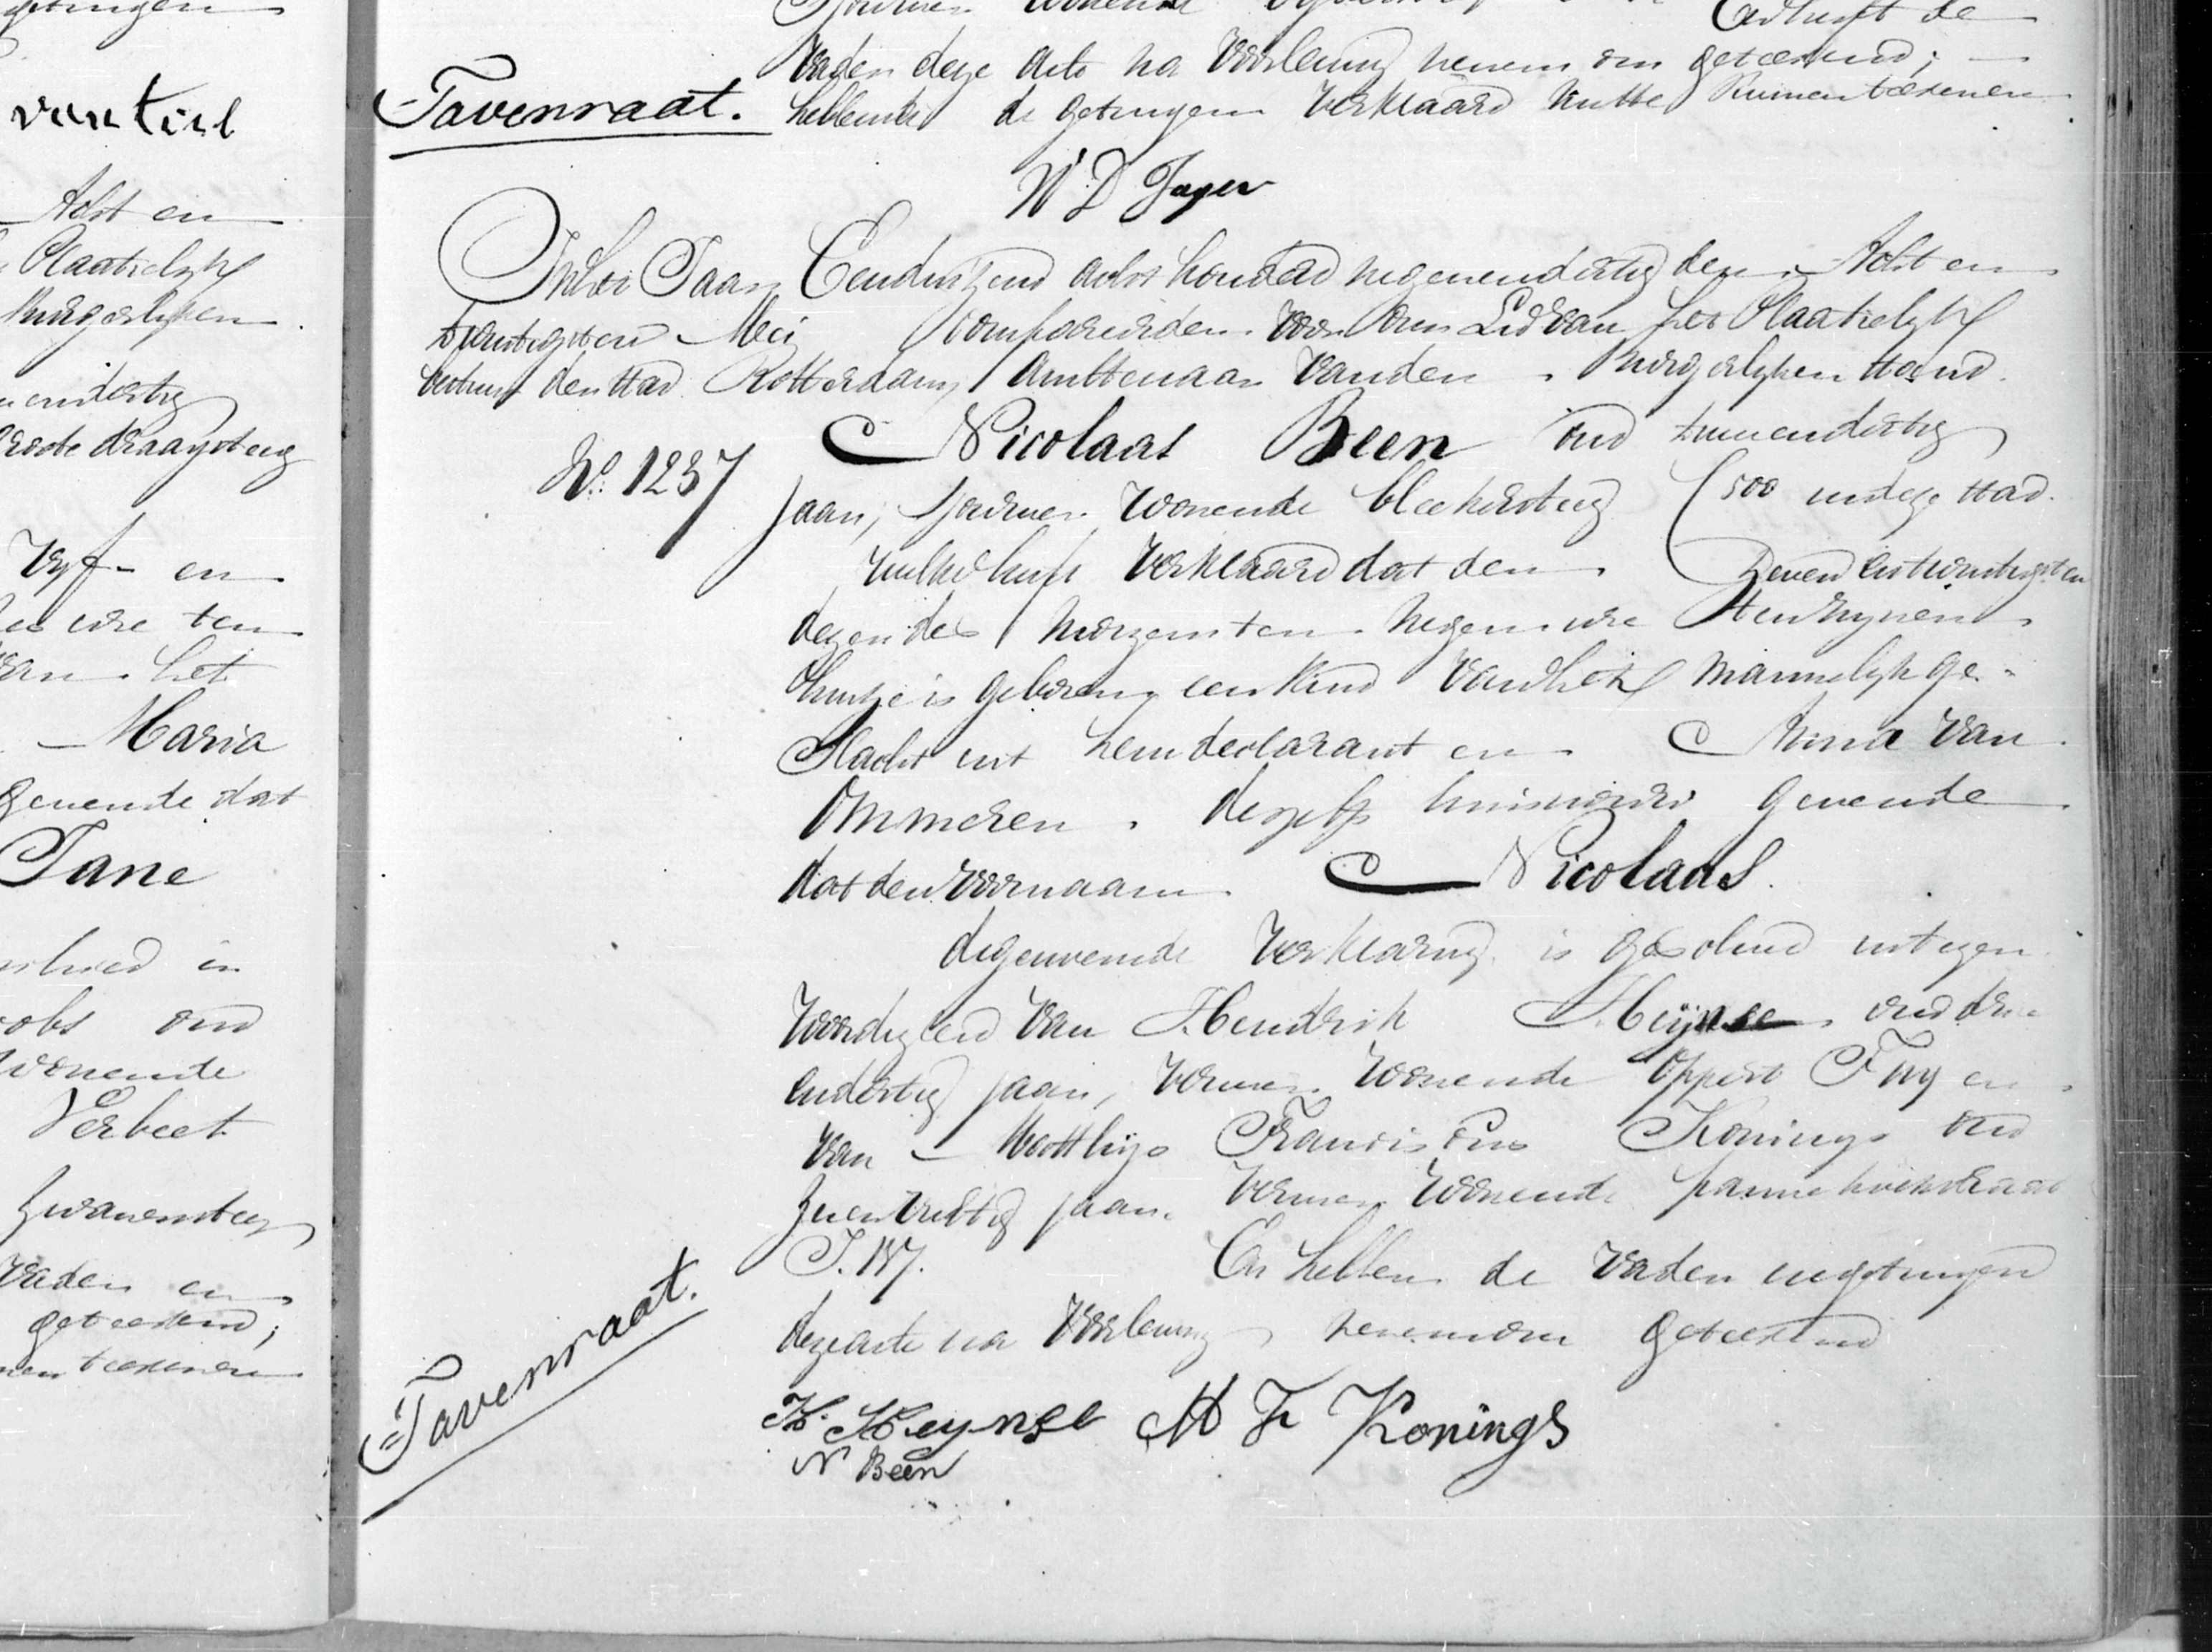 getuigen
van tiel
Acht en
Plaatselyk
Burgerlyken
endertig
Groote draaysteeg
Vyf en
ure ten
van het
Maria
gevende dat
Jane
in
oud
wonende
Verbeet
Zwanensteeg
Vader en
geteekend;
teekenen
Sjouwer wonende En heeft de
Vader deze acte na Voorlezing nevens ons geteekend;
Tavenraat. hebbende de getuigen Verklaard niette kunnen teekenen
W D Jager
In het Jaar Eenduizend acht honderd negenendertig den Acht en
twintigsten Mei Compareerden voor ons Lid van het Plaatselyk
bestuur der stad Rotterdam, Ambtenaar van den Burgerlyken stand
Nicolaas Been oud tweeendertig
No. 1237
Jaar, Sjouwer wonende bleekersteeg 500 in deze stad
welke heeft Verklaard dat den Zeven entwintigsten
dezer des morgens ten negen ure ten zynen
huize is geboren een kind van het mannelyk ge-
slacht uit hem declarant en Anna van
Ommeren deszelfs huisvrouw gevende
dat den voornaam Nicolaas.
deze Verklaring is geschied in tegen
woordigheid van Hendrik Heynse oud drie
endertig jaar, Verwer wonende Oppert en
van Matthys Franciscus Konings oud
jaar Verwer wonende pannekoekstraat
I. 187. En hebben de Vader en getuigen
deze acte na Voorlezing nevens ons geteekend
Tavenraat.
H. Heynse M F Konings
N Been